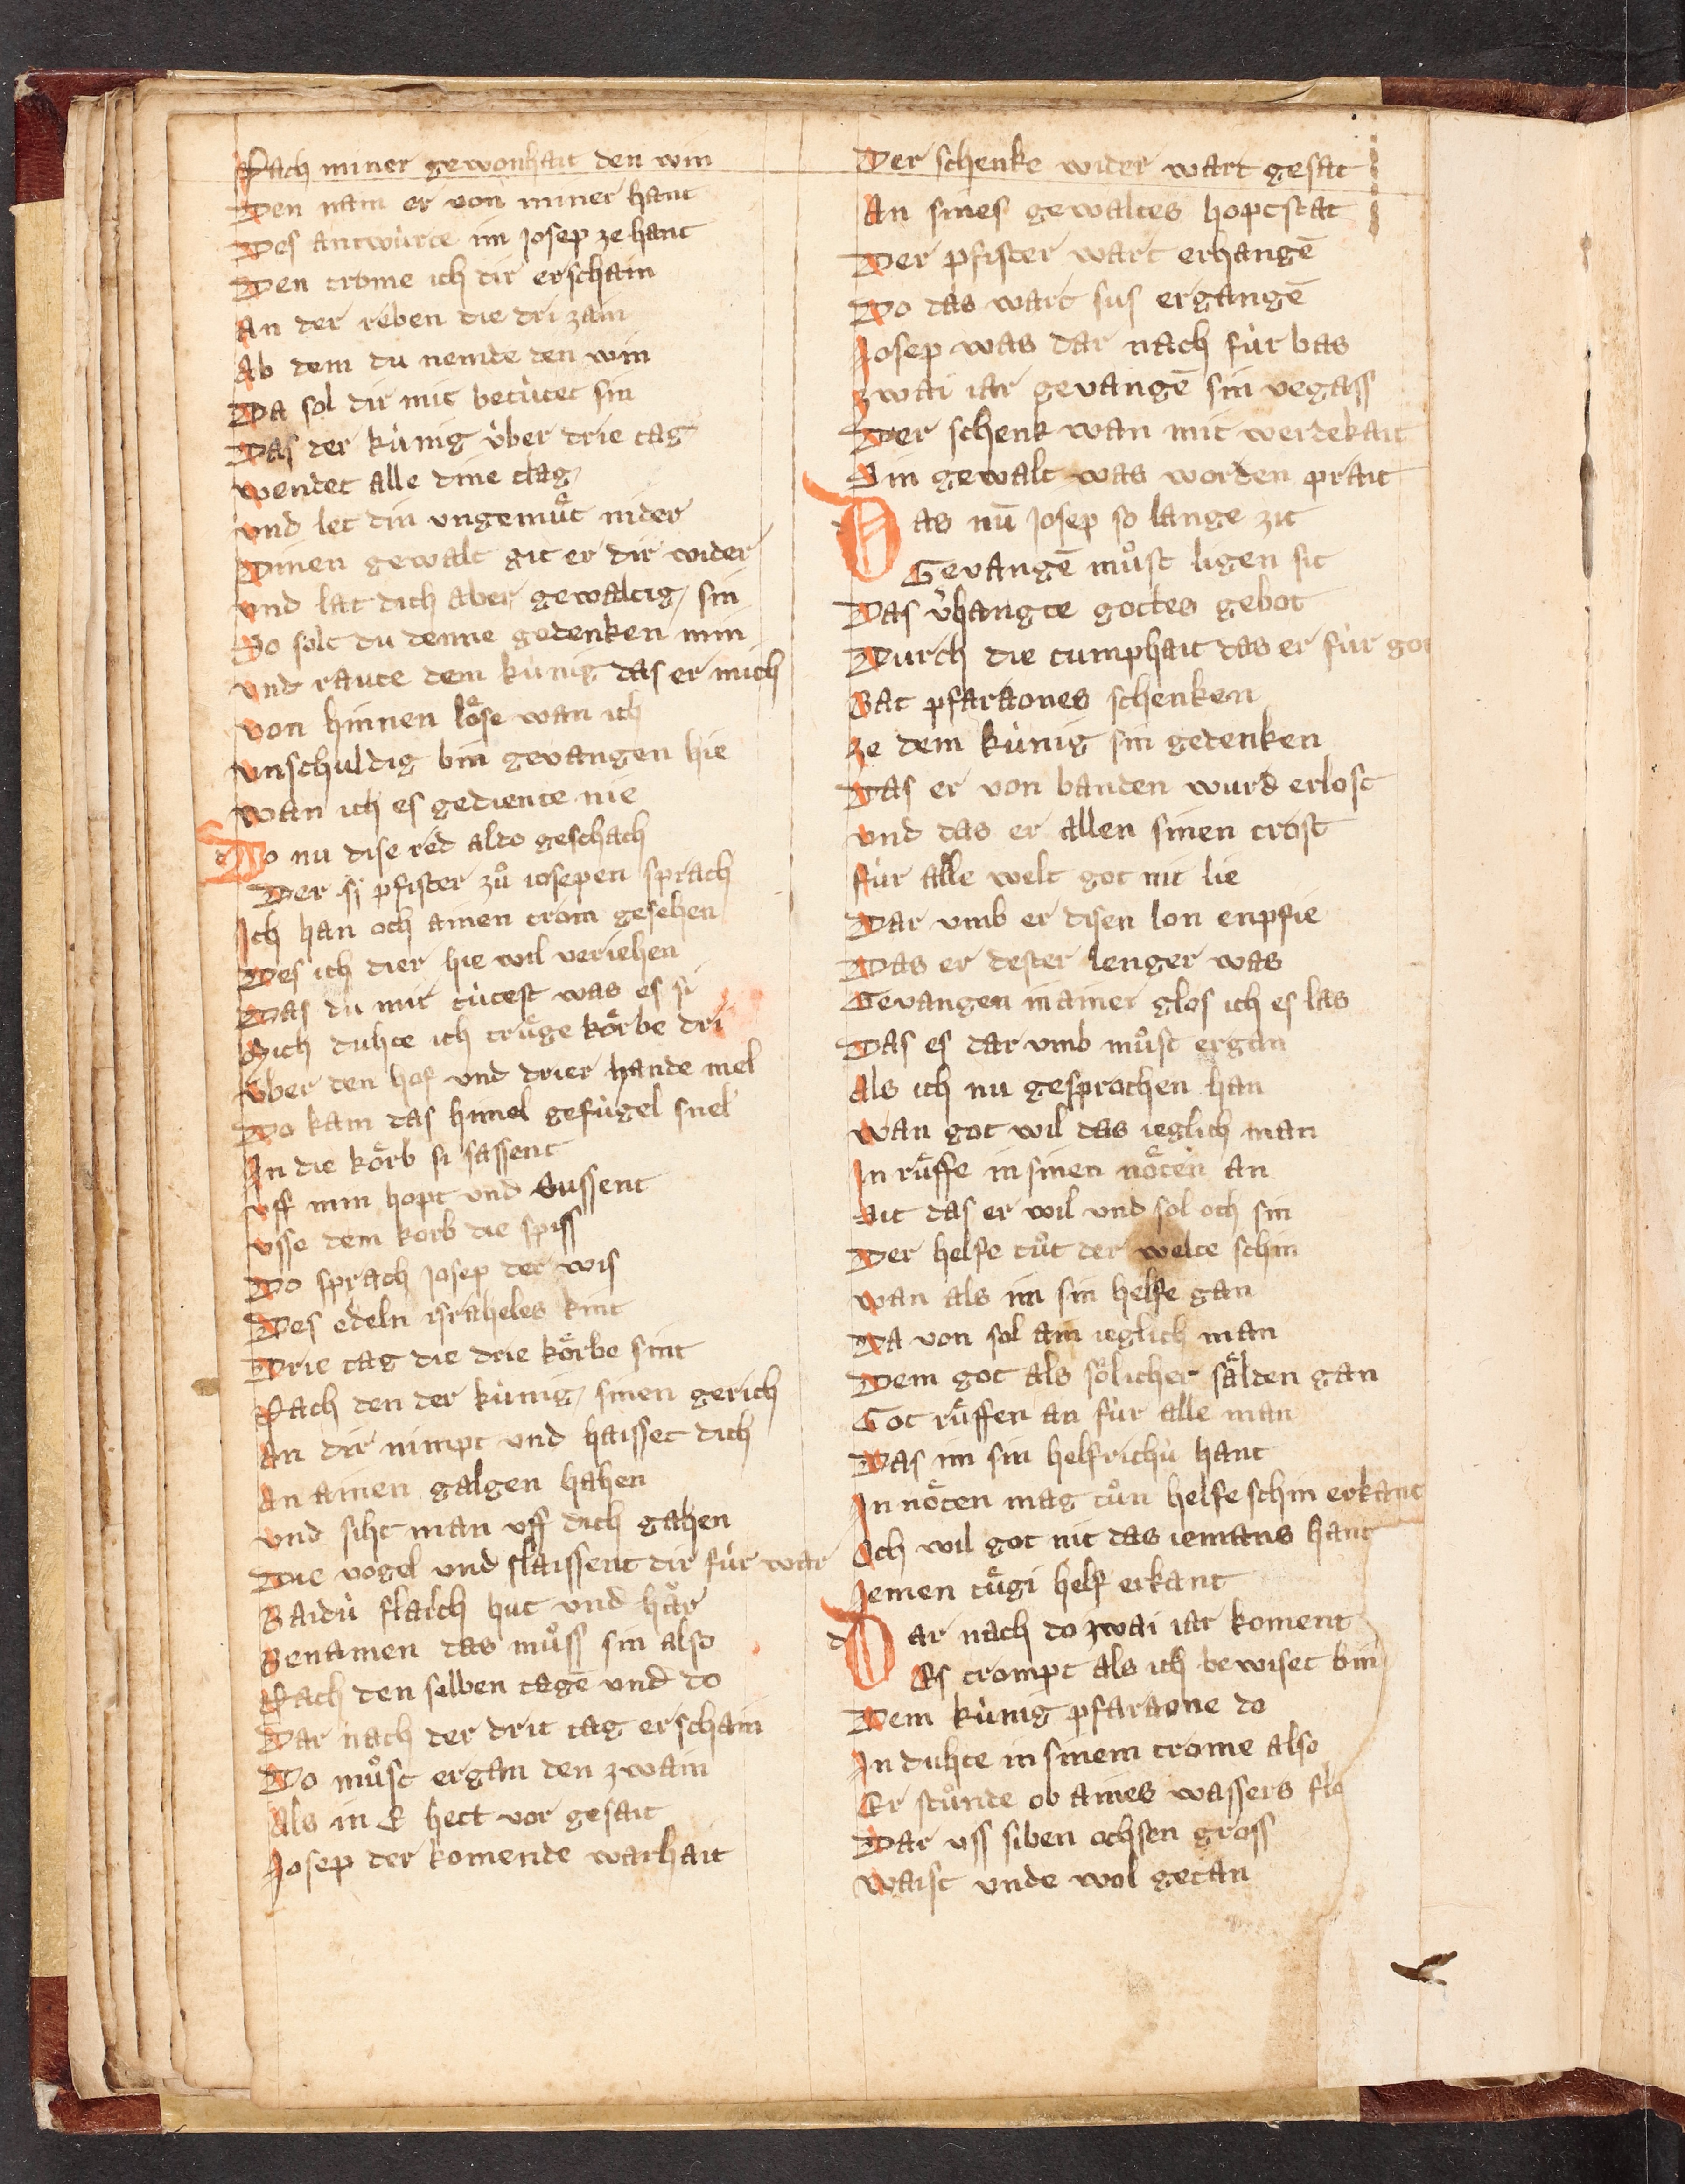 Nach miner gewonhait den win
Den nam er von miner hant
Des antwùrte im Josep ze hant
Den trome ich dir erschain
An der reben die dri zain
Ab dem du nemde den win
Da sol dir mit betùtet sin
Das der kùnig ùber drie tag
wendet alle dine clag
vnd let din vngemuͤt nider
Dinen gewalt git er dir wider
vnd lat dich aber gewaltig sin
So solt du denne gedenken min
vnd raute dem kùnig das er mich
von hinnen loͤse wan ich
vnschuldig bin gevangen hie
wan ich es gediente nie
Do nu dise red aldo geschach
Der pfister zuͦ iosepen sprach
Ich han och ainen trom gesehen
Des ich dier hie wil veriehen
Das du mit tùtest was es si
Mich duhte ich truͤge koͤrbe dri
vber den hof vnd drier hande mel
Do kam das himel gefùgel snel
In die koͤrb si sassent
vff min hopt vnd vussent
vsse dem korb die spiss
Do sprach Josep der wis
Des edeln israheles kint
Drie tag die drie koͤrbe sint
Nach den der kùnig sinen gerich
An dir nimpt vnd haisset dich
An ainen galgen hahen
vnd siht man vff dich gahen
Die vogel vnd slaissent dir fùr war
Baidù flaich hut vnd har
Benamen das muͦss sin also
Nach den selben tagē vnd do
Dar nach der drit tag erschain
Do muͦst ergan den zwain
Als in E hett vor gesait
Josep der komende warhait
Der schenke wider wart gesat
An sines gewaltes hoptstat
Der pfister wart erhangē
Do das wart sus ergangē
Josep was dar nach fùr bas
zwai iar gevangē sin vegass
Der schenk wan mit werdekait
Sin gewalt was worden prait
Das nū Josep so lange zit
Gevangē muͦst ligen sit
Das v̓hangte gottes gebot
Durch die tumphait das er fùr got
Bat pfaraones schenken
ze dem kùnig sin gedenken
Das er von banden wurd erlost
vnd das er allen sinen trost
fùr alle welt got nit lie
Dar vmb er disen lon enpfie
Das er dester lenger was
Gevangen in ainer glos ich es las
Das es dar vmb muͦst ergan
Als ich nu gesprochen han
wan got wil das ieglich man
In ruͤffe in sinen noͤten an
sit das er wil vnd sol och sin
Der helfe tuͦt der welte schin
wan als im sin helfe gan
Da von sol ain ieglich man
Dem got als soͤlicher saͤlden gan
Got ruͤffen an fùr alle man
Das im sin helfrichù hant
In noͤten mag tuͦn helfe schin erkant
Och wil got nit das iemans hant
Jemen tuͤgi helf erkant
Dar nach do zwai iar koment
Es trompt als ich bewiset bin
Dem kùnig pfaraone do
In duhte in sinem trome also
Er stuͦnde ob aines wassers flo
Dar vss siben ochsen gross
waist vnde wol getan